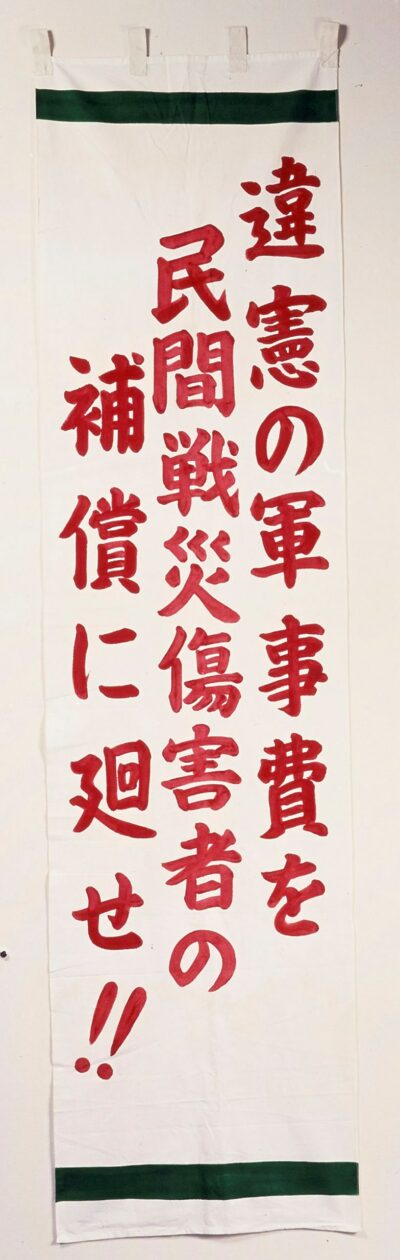 違憲の軍事費を
民間戦災傷害者の
補償に廻せ!!